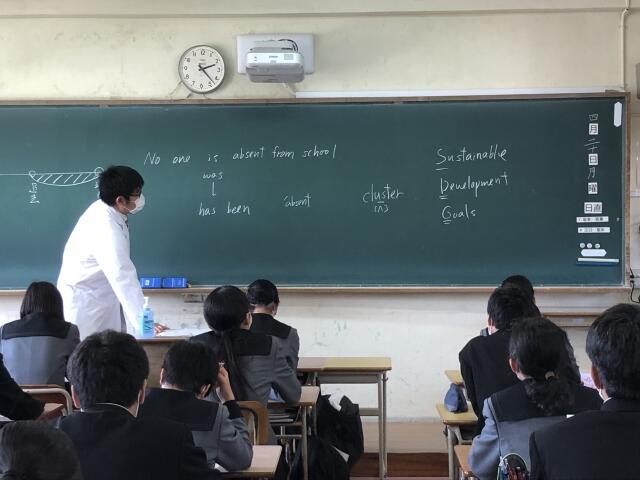 No one is absent from school
was
↓
has been absent
cluster
[ʌ]
Sustainable
Development
Goals
四月
二十日
月曜
日直